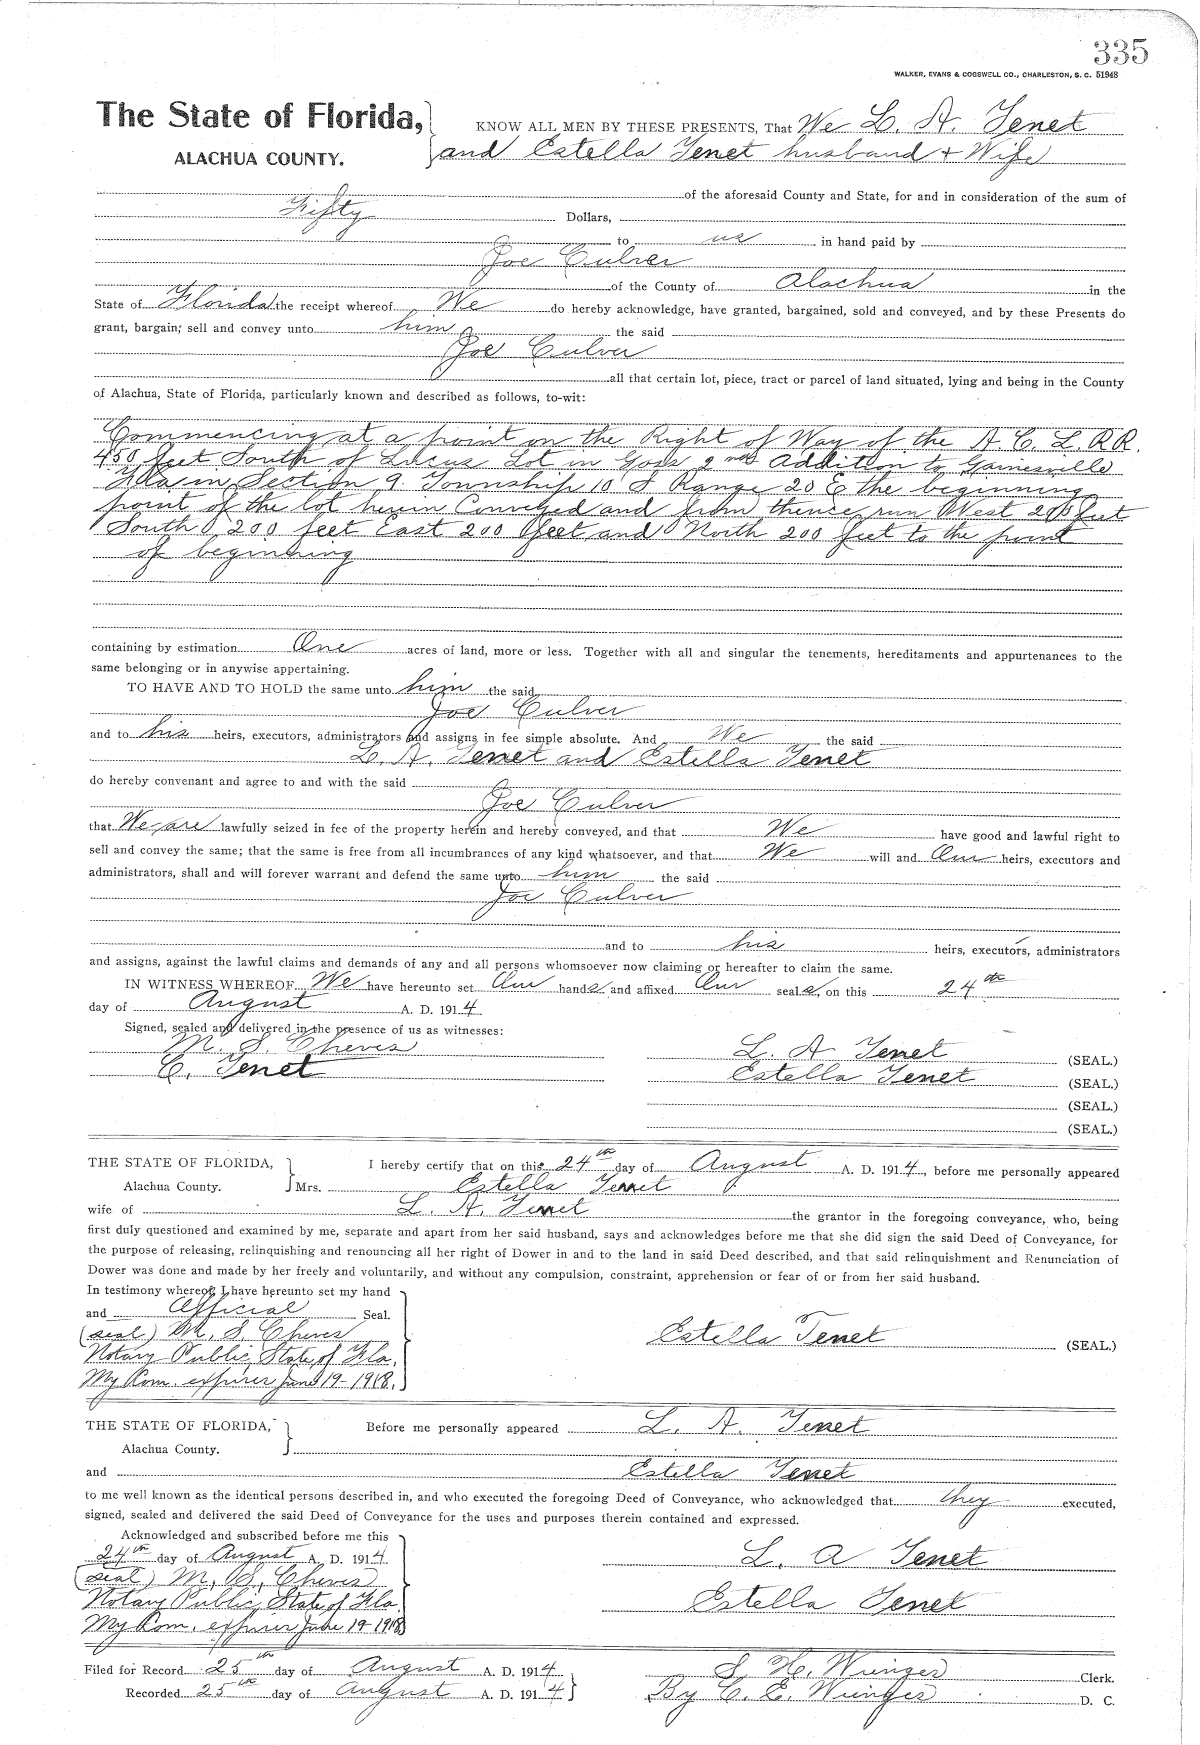 335
WALKER, EVANS & COGSWELL CO., CHARLESTON, S. C. 51948
The State of Florida, KNOW ALL MEN BY THESE PRESENTS, That We L. A. Tenet
ALACHUA COUNTY. and Estella Tenet husband + Wife
of the aforesaid County and State, for and in consideration of the sum of
Fifty Dollars,
to us in hand paid by
Joe Culver
of the County of Alachua in the
State of Florida the receipt whereof We do hereby acknowledge, have granted, bargained, sold and conveyed, and by these Presents do
grant, bargain, sell and convey unto him the said
Joe Culver
all that certain lot, piece, tract or parcel of land situated, lying and being in the County
of Alachua, State of Florida, particularly known and described as follows, to-wit:
Commencing at a point on the Right of Way of the A. C. L. RR.
450 feet South of Lucus Lot in Goss 2nd Addition to Gainesville
Fla in Section 9 Township 10 S Range 20 E the beginning
point of the lot herein Conveyed and from thence run West 200 feet
South 200 feet East 200 feet and North 200 feet to the point
of beginning
containing by estimation One acres of land, more or less. Together with all and singular the tenements, hereditaments and appurtenances to the
same belonging or in anywise appertaining.
TO HAVE AND TO HOLD the same unto him the said
Joe Culver
and to his heirs, executors, administrators and assigns in fee simple absolute. And We the said
L. A. Tenet and Estella Tenet
do hereby convenant and agree to and with the said
Joe Culver
that We are lawfully seized in fee of the property herein and hereby conveyed, and that We have good and lawful right to
sell and convey the same; that the same is free from all incumbrances of any kind whatsoever, and that We will and Our heirs, executors and
administrators, shall and will forever warrant and defend the same unto him the said
Joe Culver
and to his heirs, executors, administrators
and assigns, against the lawful claims and demands of any and all persons whomsoever now claiming or hereafter to claim the same.
IN WITNESS WHEREOF We have hereunto set Our hands and affixed Our seals, on this 24th
day of August A. D. 1914.
Signed, sealed and delivered in the presence of us as witnesses:
M. S. Cheves L. A Tenet (SEAL.)
C. Tenet Estella Tenet (SEAL.)
(SEAL.)
(SEAL.)
THE STATE OF FLORIDA, I hereby certify that on this 24th day of August A. D. 1914, before me personally appeared
Alachua County. Mrs. Estella Tenet
wife of L. A. Tenet the grantor in the foregoing conveyance, who, being
first duly questioned and examined by me, separate and apart from her said husband, says and acknowledges before me that she did sign the said Deed of Conveyance, for
the purpose of releasing, relinquishing and renouncing all her right of Dower in and to the land in said Deed described, and that said relinquishment and Renunciation of
Dower was done and made by her freely and voluntarily, and without any compulsion, constraint, apprehension or fear of or from her said husband.
In testimony whereof, I have hereunto set my hand
and Official Seal.
(seal) M. S. Cheves Estella Tenet (SEAL.)
Notary Public, State of Fla.
My Com. expires June 19-1918.
THE STATE OF FLORIDA, Before me personally appeared L. A. Tenet
Alachua County.
and Estella Tenet
to me well known as the identical persons described in, and who executed the foregoing Deed of Conveyance, who acknowledged that they executed,
signed, sealed and delivered the said Deed of Conveyance for the uses and purposes therein contained and expressed.
Acknowledged and subscribed before me this
24th day of August A. D. 1914. L. A Tenet
(seal) M. S. Cheves
Notary Public, State of Fla. Estella Tenet
My Com. expires June 19-1918
Filed for Record 25th day of August A. D. 1914 S. H. Wienges Clerk.
Recorded 25th day of August A. D. 1914 By C. E. Wienges D. C.